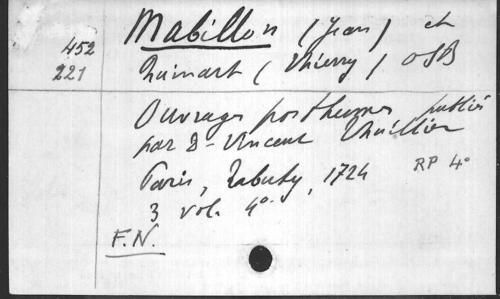 Mabillon (Jean) et
452
221
Ruinart (Thierry) OSB
Ouvrages posthumes publiés
par D- Vincent Thuillier
Paris, Babuty, 1724
RP 4°
3 vol. 4°.
F.N.